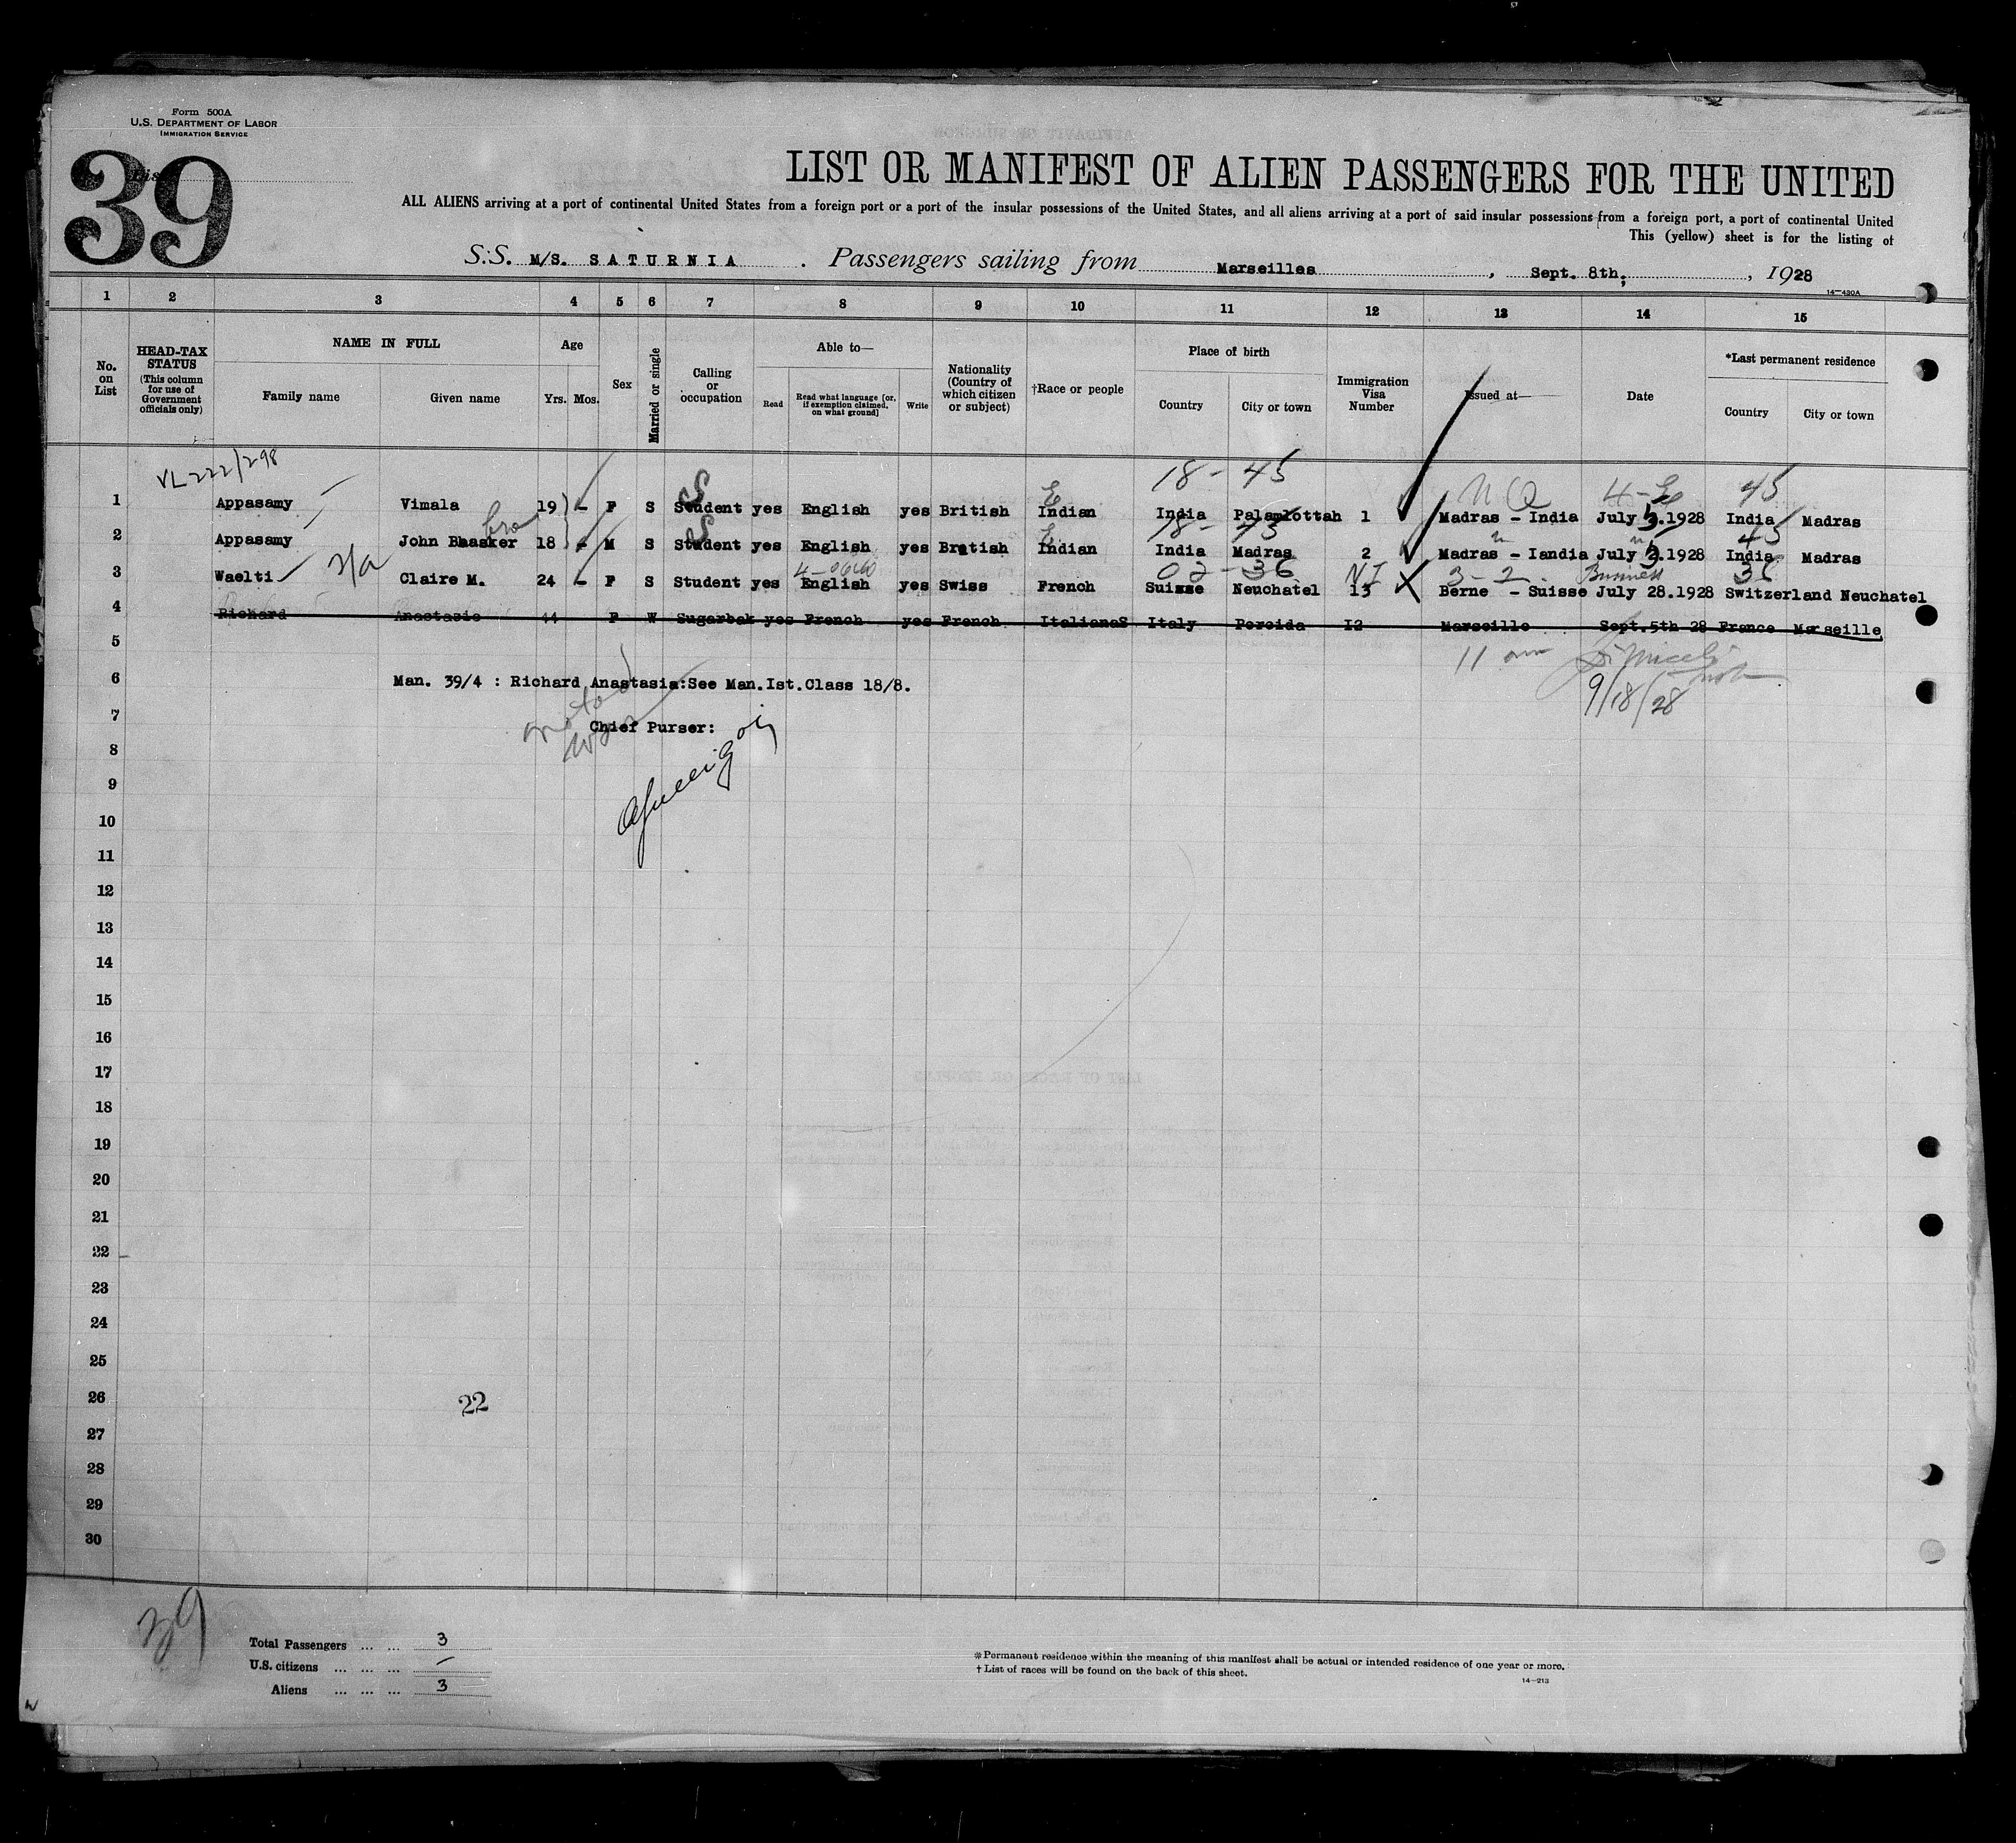 Form 500A
U.S. DEPARTMENT OF LABOR
IMMIGRATION SERVICE
39
List
LIST OR MANIFEST OF ALIEN PASSENGERS FOR THE UNITED
ALL ALIENS arriving at a port of continental United States from a foreign port or a port of the insular possessions of the United States, and all aliens arriving at a port of said insular possessions from a foreign port, a port of continental United
This (yellow) sheet is for the listing of
S.S. M/S. SATURNIA. Passengers sailing from Marseilles, Sept. 8th;, 1928
14—430A
1 2 3 4 5 6 7 8 9 10 11 12 13 14 15
No. on List
HEAD-TAX STATUS (This column for use of Government officials only)
NAME IN FULL
Family name
Given name
Age
Yrs. Mos.
Sex
Married or single
Calling or occupation
Able to—
Read
Read what language [or, if exemption claimed, on what ground]
Write
Nationality (Country of which citizen or subject)
†Race or people
Place of birth
Country
City or town
Immigration Visa Number
Issued at—
Date
*Last permanent residence
Country
City or town
VL 222/298
18 - 45 N Q 4 - 45
1 Appasamy Vimala 19 - F S Student yes English yes British Indian India Palamlottah 1 Madras - India July 3.1928 India Madras
bro 18 - 45 45
2 Appasamy John Bhasker 18 - M S Student yes English yes Bretish Indian India Madras 2 Madras - Iandia July 3.1928 India Madras
n/a 02 - 36 NI 3-2 Business 36
3 Waelti Claire M. 24 - F S Student yes English yes Swiss French Suisse Neuchatel 13 Berne - Suisse July 28.1928 Switzerland Neuchatel
4 Richard Anastasie 44 F W Sugarbak yes French yes French ItalianaS Italy Porcida I2 Marseille Sept.5th 28 France Marseille
5
11 am
6 Man. 39/4 : Richard Anastasia:See Man.Ist.Class 18/8.
9/18/28
7 Chief Purser:
8
9
10
11
12
13
14
15
16
17
18
19
20
21
22
23
24
25
26
22
27
28
29
30
39
Total Passengers ... ... 3
U.S. citizens ... ... ... -
Aliens ... ... ... 3
*Permanent residence within the meaning of this manifest shall be actual or intended residence of one year or more.
†List of races will be found on the back of this sheet.
14—213